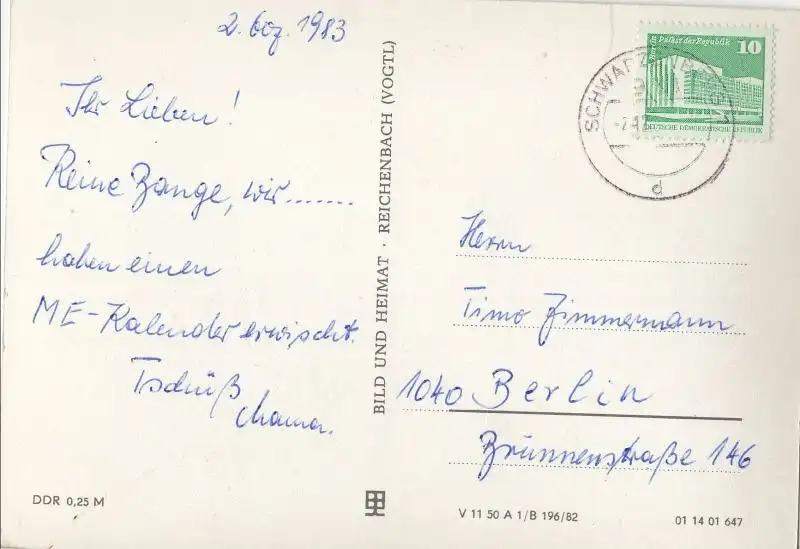 2. Dez. 1983
Ihr Lieben!
Keine Bange, wir.......
haben einen
ME-Kalender erwischt.
Tschüß
Mama.
DDR 0,25 M
BILD UND HEIMAT · REICHENBACH (VOGTL)
Berlin Palast der Republik 10
DEUTSCHE DEMOKRATISCHE REPUBLIK
d
Herrn
Timo Zimmermann
1040 Berlin
Brunnenstraße 146
V 11 50 A 1/B 196/82
01 14 01 647